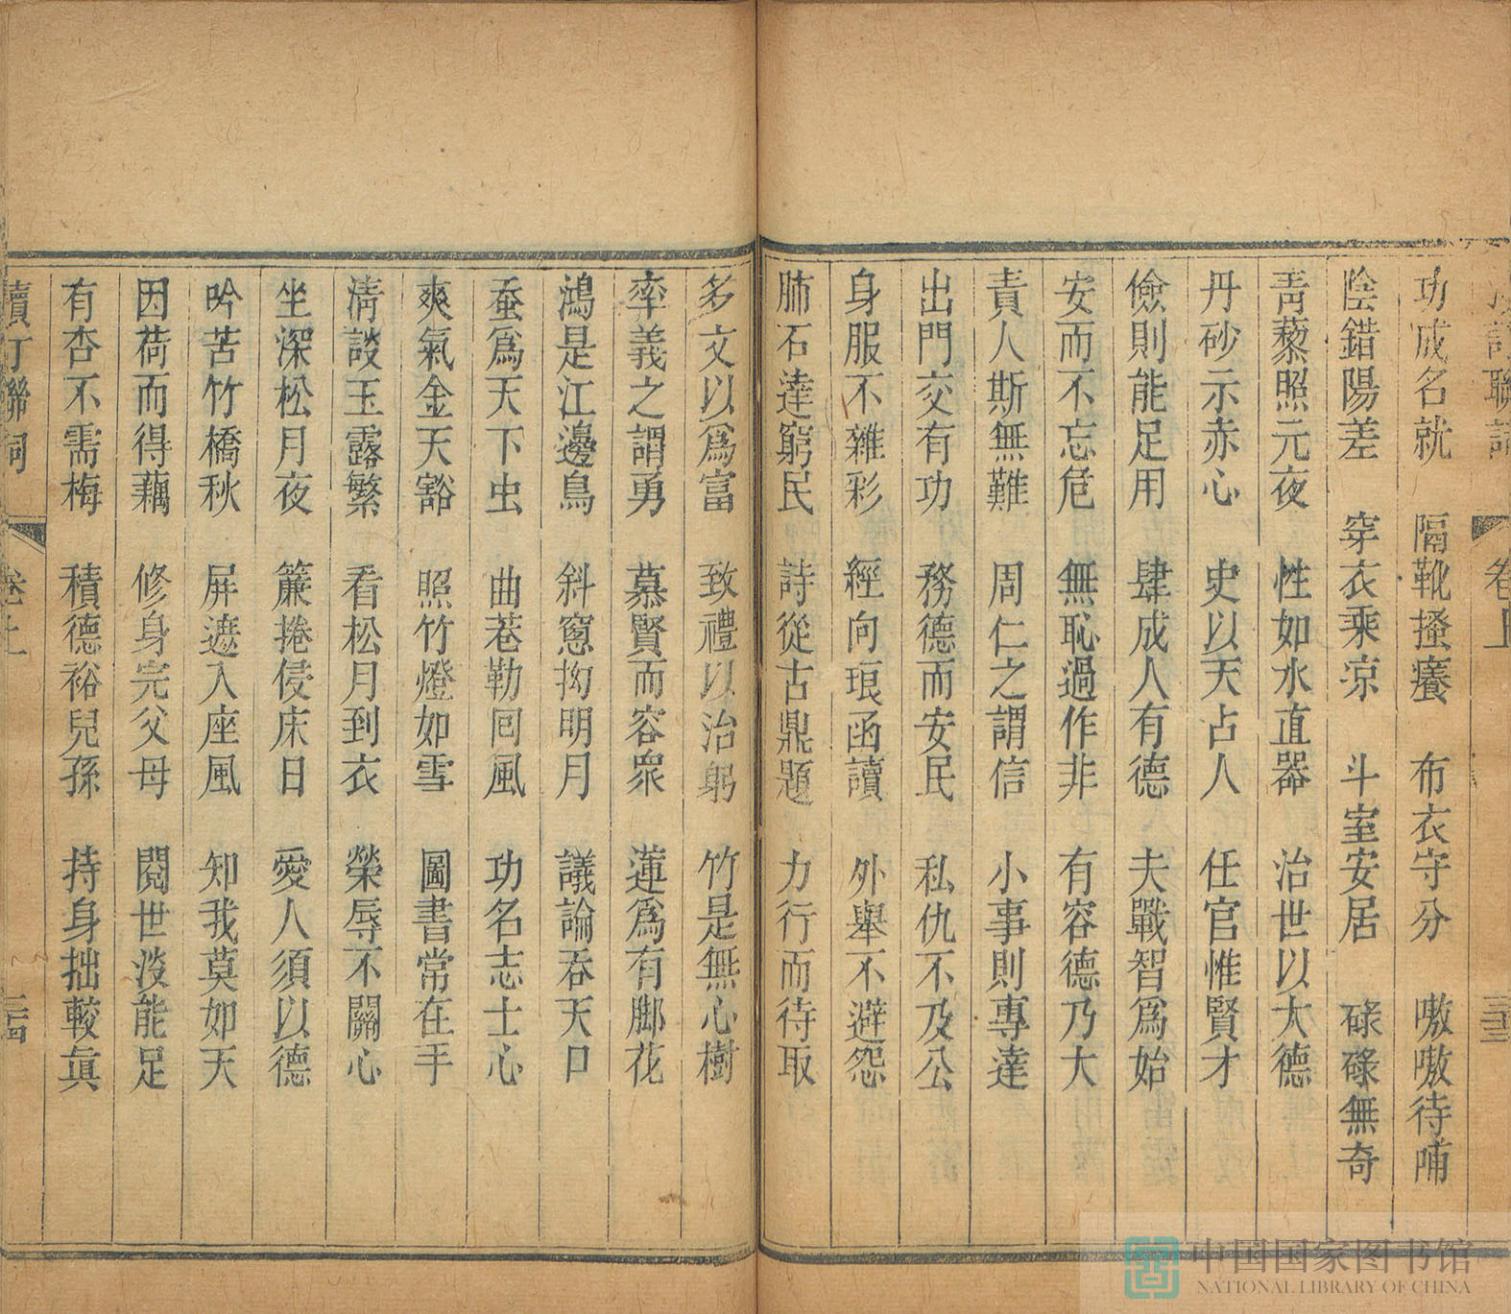 卷上
功成名就 隔靴搔癢 布衣守分 嗷嗷待哺
陰錯陽差 穿衣乘凉 斗室安居 碌碌無奇
靑藜照元夜 性如水直器 治世以大德
丹砂示赤心 史以天占人 任官惟賢才
儉則能足用 肆成人有德 夫戰智爲始
安而不忘危 無恥過作非 有容德乃大
責人斯無難 周仁之謂信 小事則專達
出門交有功 務德而安民 私仇不及公
身服不雜彩 經向琅函讀 外舉不避怨
肺石達窮民 詩從古鼎題 力行而待取
多文以爲富 致禮以治躬 竹是無心樹
率義之謂勇 慕賢而容衆 蓮爲有脚花
鴻是江邊鳥 斜窻拘明月 議論吞天口
蚕爲天下虫 曲巷勒回風 功名志士心
爽氣金天豁 照竹燈如雪 圖書常在手
淸談玉露繁 看松月到衣 榮辱不關心
坐深松月夜 簾捲侵床日 愛人須以德
吟苦竹橋秋 屏遮入座風 知我莫如天
因荷而得藕 修身完父母 閱世淡能足
有杏不需梅 積德裕兒孫 持身拙較眞
卷上
中国国家图书馆
NATIONAL LIBRARY OF CHINA